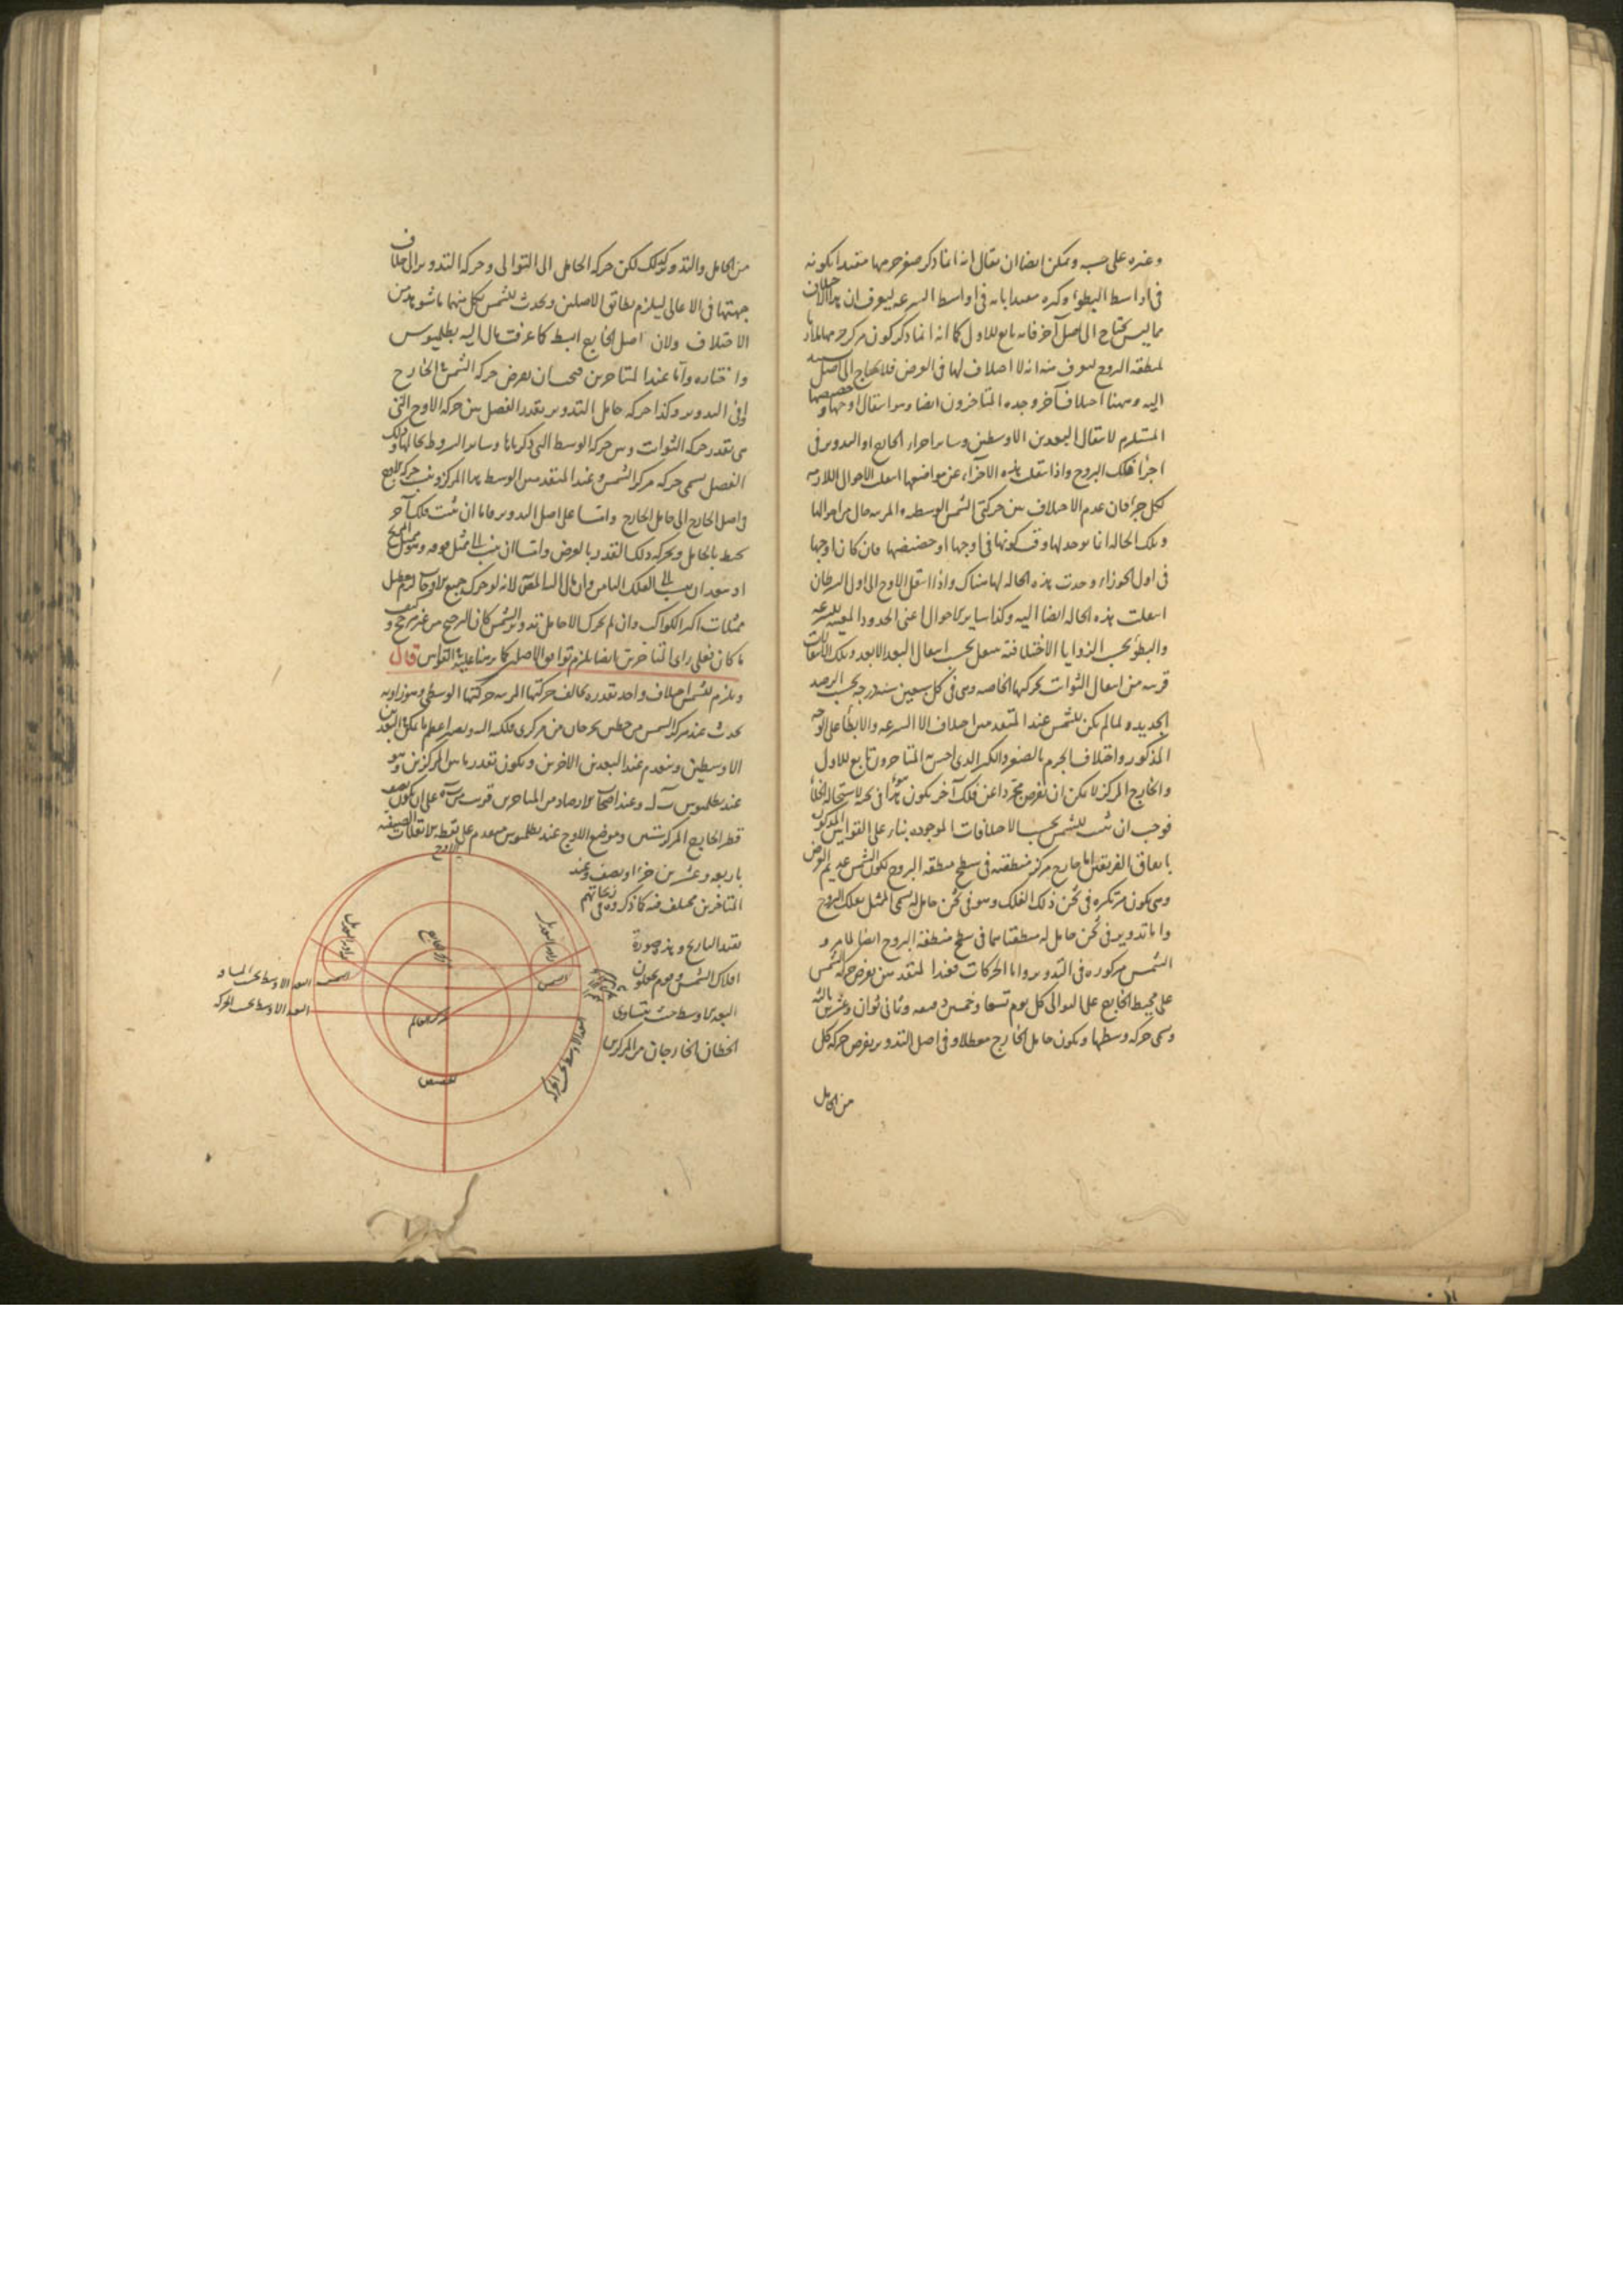 وغيره على حسبه ويمكن ايضا ان يقال انه انما ذكر صغر جرمها مقيدا بكونه
في اواسط البطؤ وكبره مقيدا بانه في اواسط السرعة ليعرف ان هذا الاختلاف
مما ليس يحتاج الى اصل آخر فانه تابع للاول كما انه انما ذكر كون مركز جرمها ملازما
لمنطقة البروج ليعرف منه انه لا اختلاف لها في العرض فلا يحتاج الى اصل يستند
اليه وههنا اختلاف آخر وجده المتاخرون ايضا وهو انتقال اوجها وحضيضها
المستلزم لانتقال البعدين الاوسطين وساير اجزاء الخارج او التدوير في
اجزاء فلك البروج واذا انتقلت هذه الاجزاء عن مواضعها انتقلت الاحوال اللازمة
لكل جزء فان عدم الاختلاف بين حركتي الشمس الوسطى والمرئية حال من احوالها
وتلك الحالة انما توجد لها وقت كونها في اوجها او حضيضها فان كان اوجها
في اول الجوزاء وجدت هذه الحالة لها هناك واذا انتقل الاوج الى اول السرطان
انتقلت هذه الحالة ايضا اليه وكذا ساير الاحوال اعني الحدود المعينة للسرعة
والبطؤ بحسب الزوايا الاختلافية تنتقل بحسب انتقال البعد الابعد وتلك الانتقالات
قريبة من انتقال الثوابت بحركتها الخاصة وهي في كل سبعين سنة درجة بحسب الرصد
الجديد ولما لم يكن للشمس عند المتقدمين اختلاف الا السرعة والابطاء على الوجه
المذكور واختلاف الجرم بالصغر والكبر الذي احس به المتاخرون تابع للاول
والخارج المركز لا يمكن ان يفرض مجردا عن فلك آخر يكون هو في ثخنه لاستحالة الخلأ
فوجب ان يثبت للشمس بحسب الاختلافات الموجودة بناء على القوانين المذكورة
باتفاق الفريقين اما خارج مركز منطقته في سطح منطقة البروج لكون الشمس عديم العرض
وهي تكون مرتكزة في ثخن ذلك الفلك وهو في ثخن حامل له يسمى الممثل بفلك البروج
واما تدوير في ثخن حامل له منطقتاهما في سطح منطقة البروج ايضا لما مر و
الشمس مركوزة في التدوير واما الحركات فعند المتقدمين يفرض حركة الشمس
على محيط الخارج على التوالي كل يوم تسعا وخمسين دقيقة وثماني ثوان وعشرين ثالثة
وسمى حركة وسطها ويكون حامل الخارج معطلا وفي اصل التدوير يفرض حركة كل
من الحامل
من الحامل والتدوير كذلك لكن حركة الحامل الى التوالي وحركة التدوير الى خلاف
جهتها في الاعالي ليلزم تطابق الاصلين ويحدث للشمس بكل منهما ما شوهد من
الاختلاف ولان اصل الخارج ابسط كما عرفت مال اليه بطلميوس
واختاره واما عند المتاخرين فيجب ان يفرض حركة الشمس في الخارج
وفي التدوير وكذا حركة حامل التدوير بقدر الفضل بين حركة الاوج التي
هي بقدر حركة الثوابت وبين حركة الوسط التي ذكرناها وساير الشروط بحالها وذلك
الفضل يسمى حركة مركز الشمس وعند المتقدمين الوسط هما المركز وينسب حركة الاوج
في اصل الخارج الى حامل الخارج واما على اصل التدوير فاما ان يثبت فلك آخر
يحيط بالحامل ويحركه ذلك القدر بالعرض واما ان ينسب الى
ما كان فعلى راي المتاخرين ايضا يلزم توافق الاصلين كما برهنا عليه في القوانين قال
ويلزم للشمس اختلاف واحد بقدره يخالف حركتها المرئية حركتها الوسطى وهو زاوية
تحدث عند مركز الشمس من خطين يخرجان من مركزي فلكه اليه ويصير اعظم ما يمكن في البعدين
الاوسطين وينعدم عند البعدين الاخرين ويكون بقدر ما بين المركزين وهو
عند بطلميوس ب ل وعند اصحاب الارصاد من المتاخرين قريب من ب ه على ان يكون نصف
قطر الخارج المركز ستين وموضع الاوج عند بطلميوس متقدم على نقطة الانقلاب الصيفي
باربعة وعشرين جزءا ونصف وعند
المتاخرين مختلف فيه كما ذكروه في زيجاتهم
بقيد التاريخ وهذه صورة
افلاك الشمس وهم يجعلون
البعد الاوسط حيث يتساوى
الخطان الخارجان من المركزين
الاوج
مركز الخارج
مركز العالم
الحضيض
زاوية التعديل
زاوية التعديل
الشمس
الشمس
البعد الاوسط بحسب المسافة
البعد الاوسط بحسب الحركة
البعد الاوسط بحسب الحركة